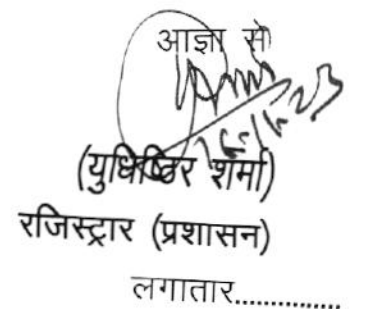 आज्ञा से
(युधिष्ठिर शर्मा)
रजिस्ट्रार (प्रशासन)
लगातार...............